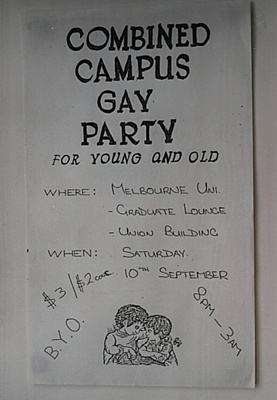 COMBINED
CAMPUS
GAY
PARTY
FOR YOUNG AND OLD
WHERE: MELBOURNE UNI.
- GRADUATE LOUNGE
- UNION BUILDING
WHEN: SATURDAY.
10TH SEPTEMBER
$3/$2 conc.
8PM - 3AM
B.Y.O.